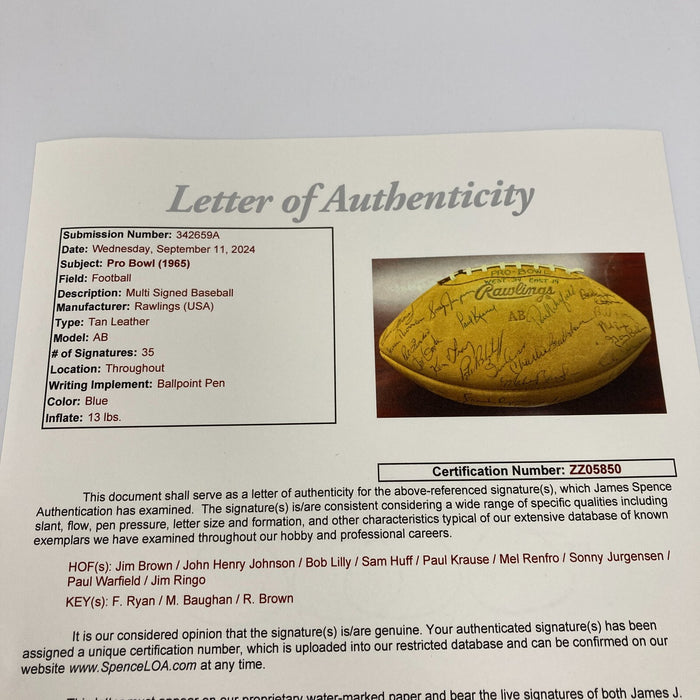 Letter of Authenticity
Submission Number: 342659A
Date: Wednesday, September 11, 2024
Subject: Pro Bowl (1965)
Field: Football
Description: Multi Signed Baseball
Manufacturer: Rawlings (USA)
Type: Tan Leather
Model: AB
# of Signatures: 35
Location: Throughout
Writing Implement: Ballpoint Pen
Color: Blue
Inflate: 13 lbs.
PRO-BOWL
Rawlings
AB
Certification Number: ZZ05850
This document shall serve as a letter of authenticity for the above-referenced signature(s), which James Spence
Authentication has examined. The signature(s) is/are consistent considering a wide range of specific qualities including
slant, flow, pen pressure, letter size and formation, and other characteristics typical of our extensive database of known
exemplars we have examined throughout our hobby and professional careers.
HOF(s): Jim Brown / John Henry Johnson / Bob Lilly / Sam Huff / Paul Krause / Mel Renfro / Sonny Jurgensen /
Paul Warfield / Jim Ringo
KEY(s): F. Ryan / M. Baughan / R. Brown
It is our considered opinion that the signature(s) is/are genuine. Your authenticated signature(s) has been
assigned a unique certification number, which is uploaded into our restricted database and can be confirmed on our
website www.SpenceLOA.com at any time.
This letter must appear on our proprietary water-marked paper and bear the live signatures of both James J.